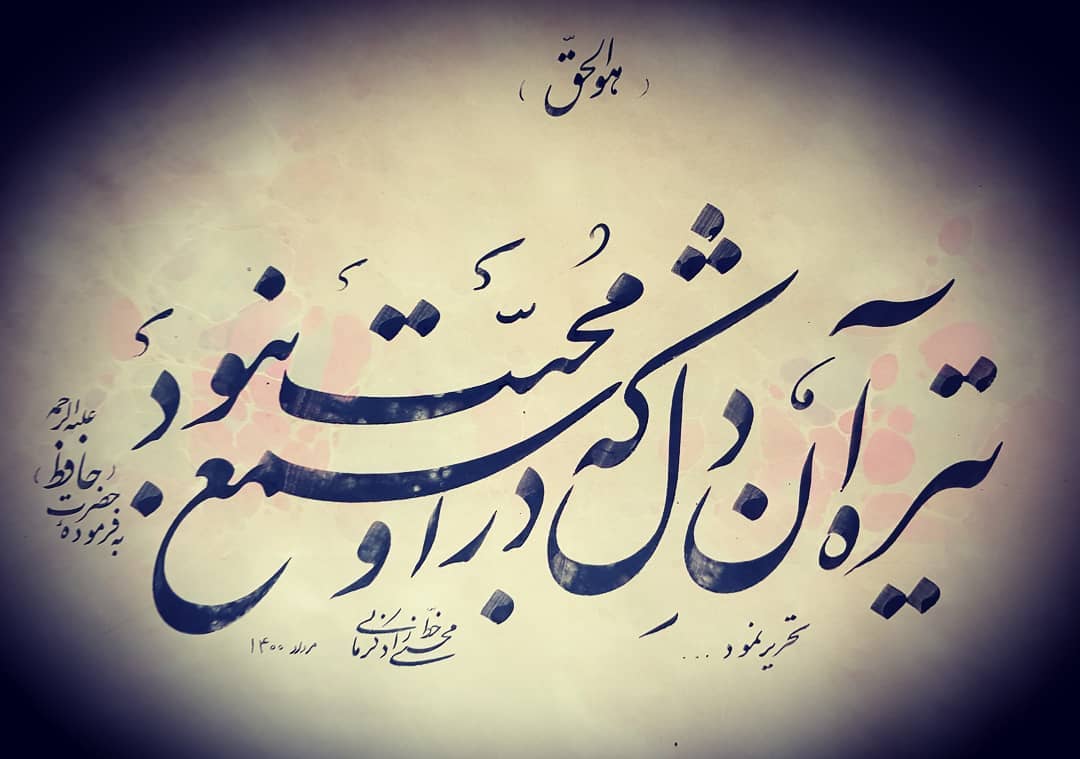 (هوالحقّ)
تیره آن دل که در او شمع محبّت نبود
به فرمودهٔ
حضرت
(حافظ)
علیه الرحمه
تحریر نمود ...
کرمانی
مرداد ۱۴۰۰